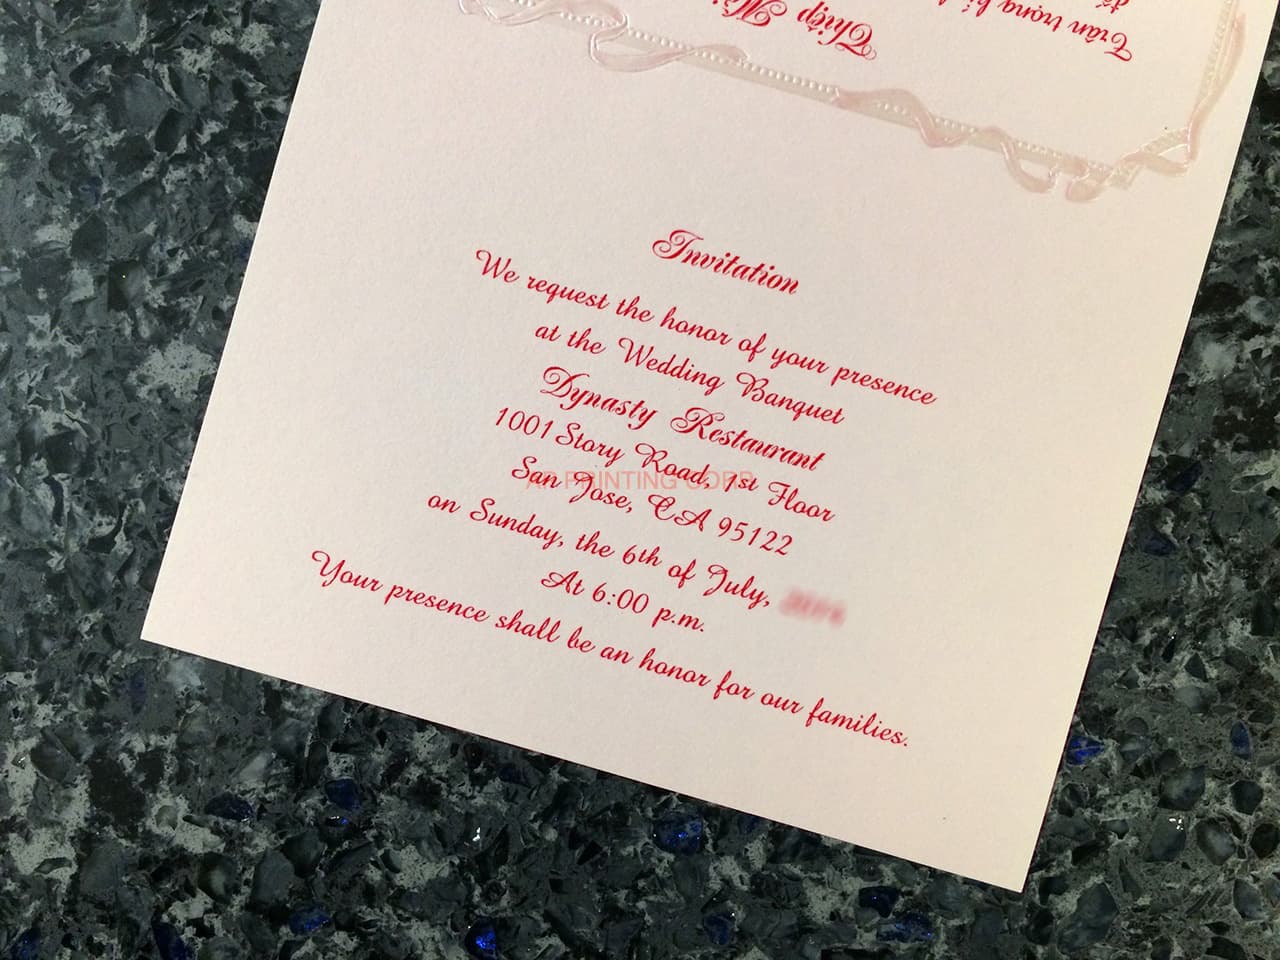 Trân trọng
Thiệp
Invitation
We request the honor of your presence
at the Wedding Banquet
Dynasty Restaurant
1001 Story Road, 1st Floor
San Jose, CA 95122
AP PRINTING CORP
on Sunday, the 6th of July,
At 6:00 p.m.
Your presence shall be an honor for our families.